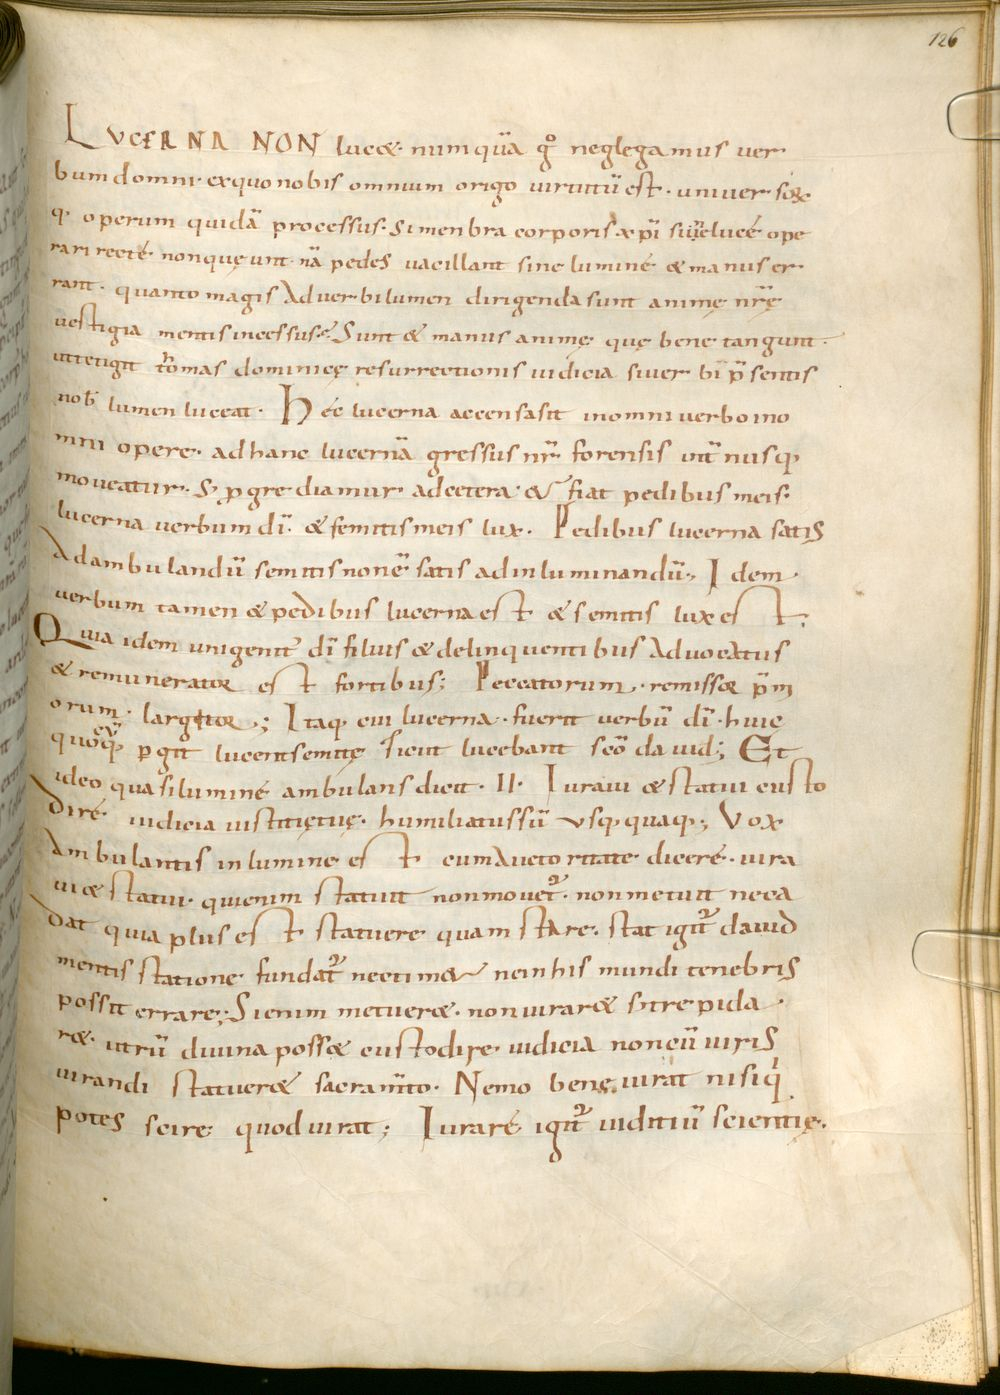 126
LVCERNA NON lucæ· numquā g̊ neglegamus ver·
bum domni· exquonobis omnium origo virtutū est· univer·soꝝ·
q· operum quidā processus· Simenbra corporis æp̄i suꝫ̄elucé ope
rari recté· nonquęunt· nā pedes vacillant sine luminé & manus er
rant· quanto magis Ad verbi lumen dirigenda sunt animę nr̄ę
vestigia mentisincessus· Sunt & manus animę· quę bene tangunt·
uttetigit tomas dominicę resurrectionis iudicia siver bī p̄sentis
nob̄ lumen luceat· Hęc lucerna accensasit inomni verbo ino
mni opere· adhanc lucernā gressus nr̄ forensis int̄ nusq·
moveatur· S; p̱gre diamur· adcetera· & fiat pedibus meis·
lucerna verbum dī· & semitis meis lux· Pedibus lucerna satis
Adambulandū semitis nonē satis ad inluminandū·, Idem·
verbum tamen & pedibus lucerna est & semitis lux est·
Quia idem unigenit᷒ dī filius & delinquentibus Advocatus
& remunerator est fortibus; Peccatorum· remissor p̄mi
orum· largitor·; Itaq· cui lucerna· fuerit verbū dī· huic
quoq· p̱git lucentsemitę sicut lucebant scō david; Et
ideo quasiluminé ambulans dicit· II· Iuravi & statui custo
diré iudicia iustitiętuę· humiliatussū usq· quaq·; Vox
Ambulantis in lumine est cumAuctoritate diceré· iura
vi & statui· quienim statuit nonmovet᷑· nonmetuit neca
dat quia plus est statuere quam stare· stat igit᷑ david
mentis statione fundat᷑ nectimet neinhis mundi tenebris
possit errare·; Sienim metuer&· noniurar& sitrepida·
r&· utrū divina poss& custodire· iudicia noncū iuris
iurandi statuer& sacram̄to· Nemo bene iurat nisi qi
potes scire quodiurat; Iuraré igit᷑ iuditiū scientię·